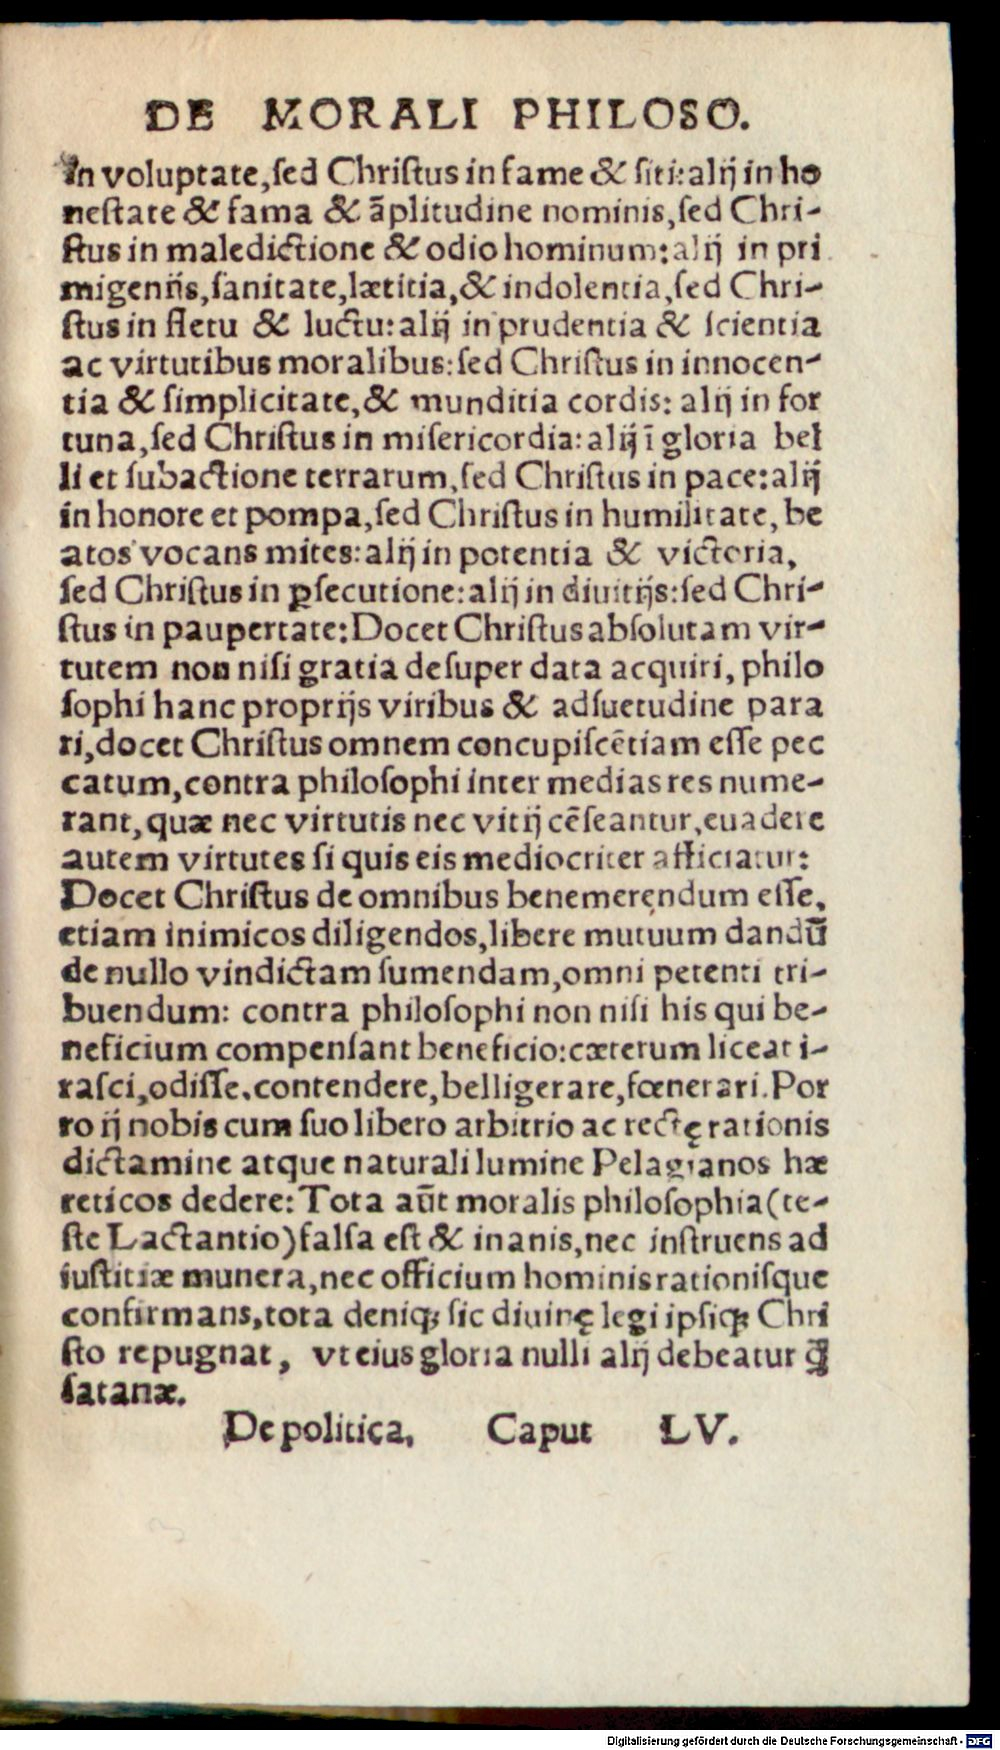 DE MORALI PHILOSO.
In voluptate, sed Christus in fame & siti: alij in ho
nestate & fama & āplitudine nominis, sed Chri-
stus in maledictione & odio hominum: alij in pri
migenijs, sanitate, lætitia, & indolentia, sed Chri-
stus in fletu & luctu: alij in prudentia & scientia
ac virtutibus moralibus: sed Christus in innocen-
tia & simplicitate, & munditia cordis: alij in for
tuna, sed Christus in misericordia: alij ī gloria bel
li et subactione terrarum, sed Christus in pace: alij
in honore et pompa, sed Christus in humilitate, be
atos vocans mites: alij in potentia & victoria,
sed Christus in ꝑsecutione: alij in diuitijs: sed Chri-
stus in paupertate: Docet Christus absolutam vir-
tutem non nisi gratia desuper data acquiri, philo
sophi hanc proprijs viribus & adsuetudine para
ri, docet Christus omnem concupiscētiam esse pec
catum, contra philosophi inter medias res nume-
rant, quæ nec virtutis nec vitij cēseantur, euadere
autem virtutes si quis eis mediocriter afficiatur:
Docet Christus de omnibus benemerendum esse,
etiam inimicos diligendos, libere mutuum dandū
de nullo vindictam sumendam, omni petenti tri-
buendum: contra philosophi non nisi his qui be-
neficium compensant beneficio: cæterum liceat i-
rasci, odisse, contendere, belligerare, fœnerari. Por
ro ij nobis cum suo libero arbitrio ac rectę rationis
dictamine atque naturali lumine Pelagianos hæ
reticos dedere: Tota aūt moralis philosophia (te-
ste Lactantio) falsa est & inanis, nec instruens ad
iustitiæ munera, nec officium hominis rationisque
confirmans, tota deniqꝫ sic diuinę legi ipsiqꝫ Chri
sto repugnat, vt eius gloria nulli alij debeatur q̄ꝫ
satanæ.
De politica, Caput LV.
Digitalisierung gefördert durch die Deutsche Forschungsgemeinschaft - DFG